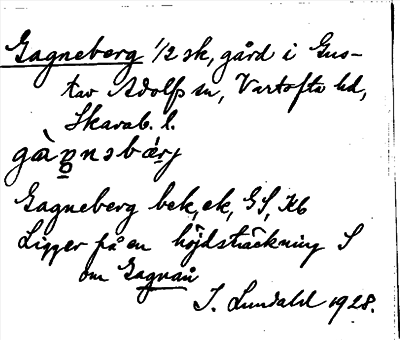 Gagneberg 1/2 sk, gård i Gus-
tav Adolfs sn, Vartofta hd,
Skarab. l.
gàŋnəbærj
Gagneberg bek, ek, GS, Kb
Ligger på en höjdsträckning S
om Gagnån
I. Lundahl 1928.